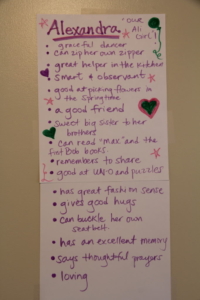 Alexandra
"our
Ali
Girl!"
• graceful dancer
• can zip her own zipper
• great helper in the kitchen
• smart & observant
• good at picking flowers in
the Springtime
• a good friend
• sweet big sister to her
brothers
• can read "max" and the
first Bob books
• remembers to share
• good at UNO and puzzles
• has great fashion sense
• gives good hugs
• can buckle her own
seat belt
• has an excellent memory
• says thoughtful prayers
• loving